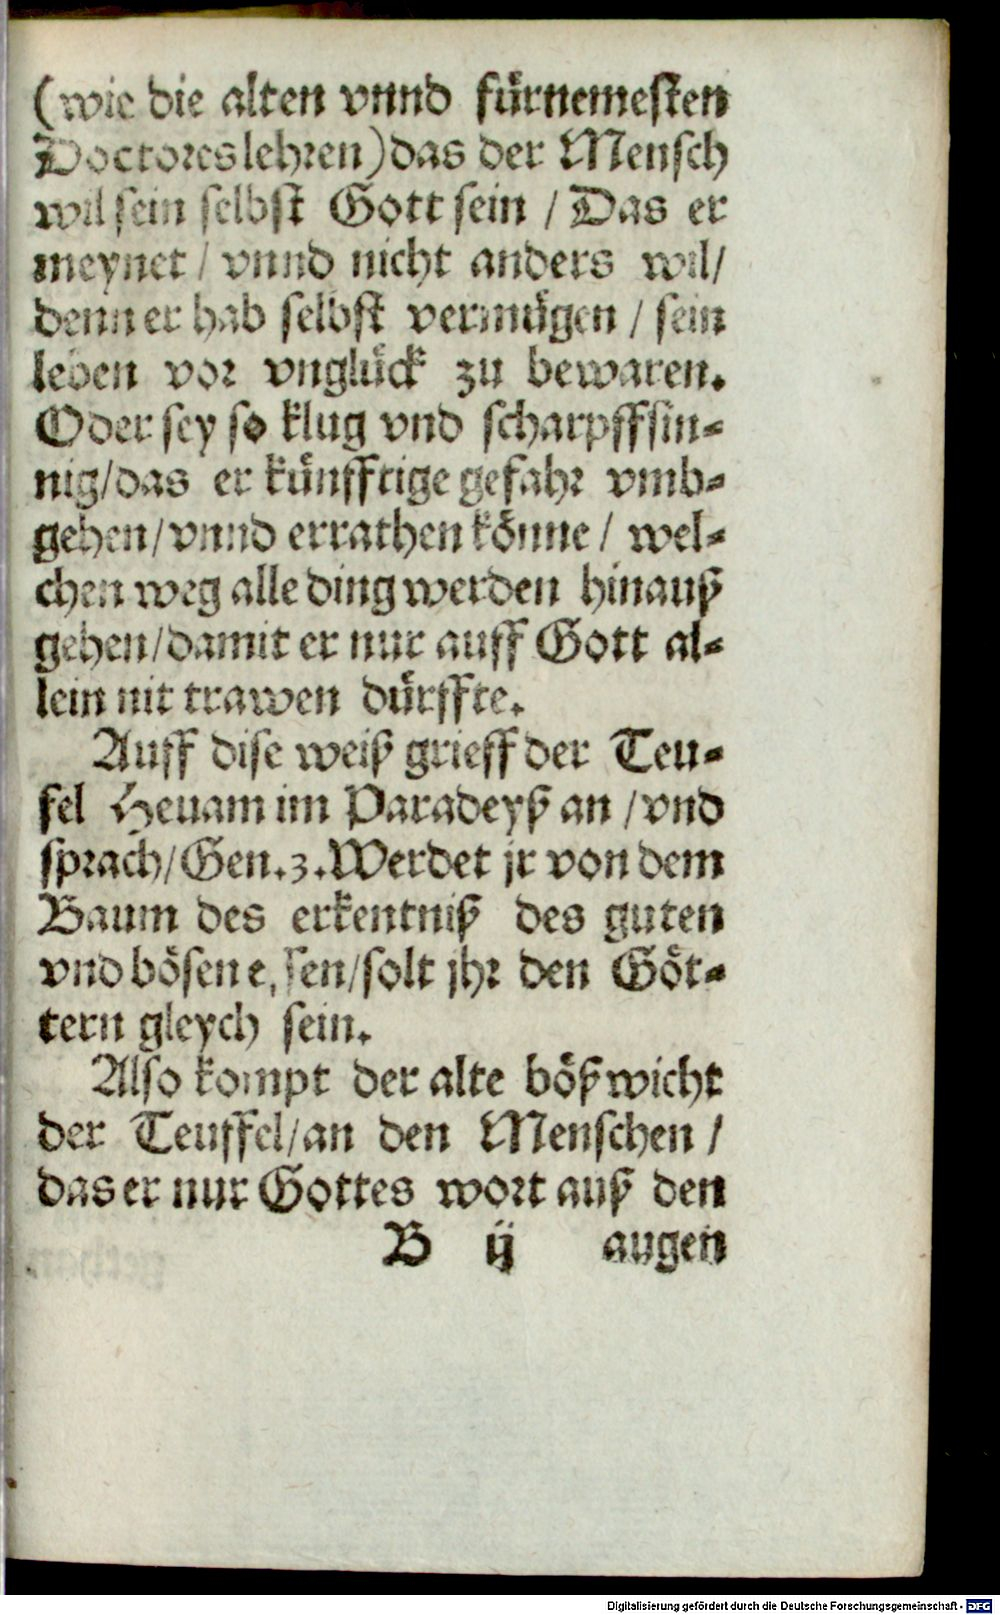 (wie die alten vnnd fürnemesten
Doctores lehren) das der Mensch
wil sein selbst Gott sein / Das er
meynet / vnnd nicht anders wil /
denn er hab selbst vermügen / sein
leben vor vnglück zu bewaren.
Oder sey so klug vnd scharpffsin-
nig / das er künfftige gefahr vmb-
gehen / vnnd errathen könne / wel-
chen weg alle ding werden hinauß
gehen / damit er nur auff Gott al-
lein nit trawen dürffte.
Auff dise weiß grieff der Teu-
fel Heuam im Paradeyß an / vnd
sprach / Gen. 3. Werdet jr von dem
Baum des erkentniß des guten
vnd bösen essen / solt jhr den Göt-
tern gleych sein.
Also kompt der alte bößwicht
der Teuffel / an den Menschen /
das er nur Gottes wort auß den
B ij augen
Digitalisierung gefördert durch die Deutsche Forschungsgemeinschaft - DFG